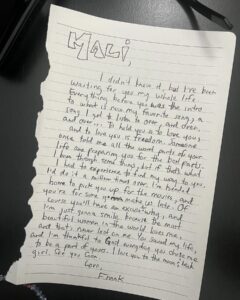 MALI,
I didn't know it, but I've been
waiting for you my whole life.
Everything before you was the intro
to what is now my favorite song, a
song I get to listen to over, and over,
and over... To hold you is to love you,
and to love you is freedom. Someone
once told me all the word parts to your
life are preparing you for the best parts.
I've been through some things, but if that's what
I had to experience to find my way to you,
I'd do it a million times over. I'm headed
home to pick you up for the movies, and
you're for sure gonna make us late. Of
course you'll have an excuse,
I'm just gonna smile because the most
beautiful woman in the world loves me,
and that's never lost on me. You saved my life,
and I'm thankful to God everyday you chose me
to be a part of yours. I love you to the moon, back
girl. See you soon
Love,
Frank